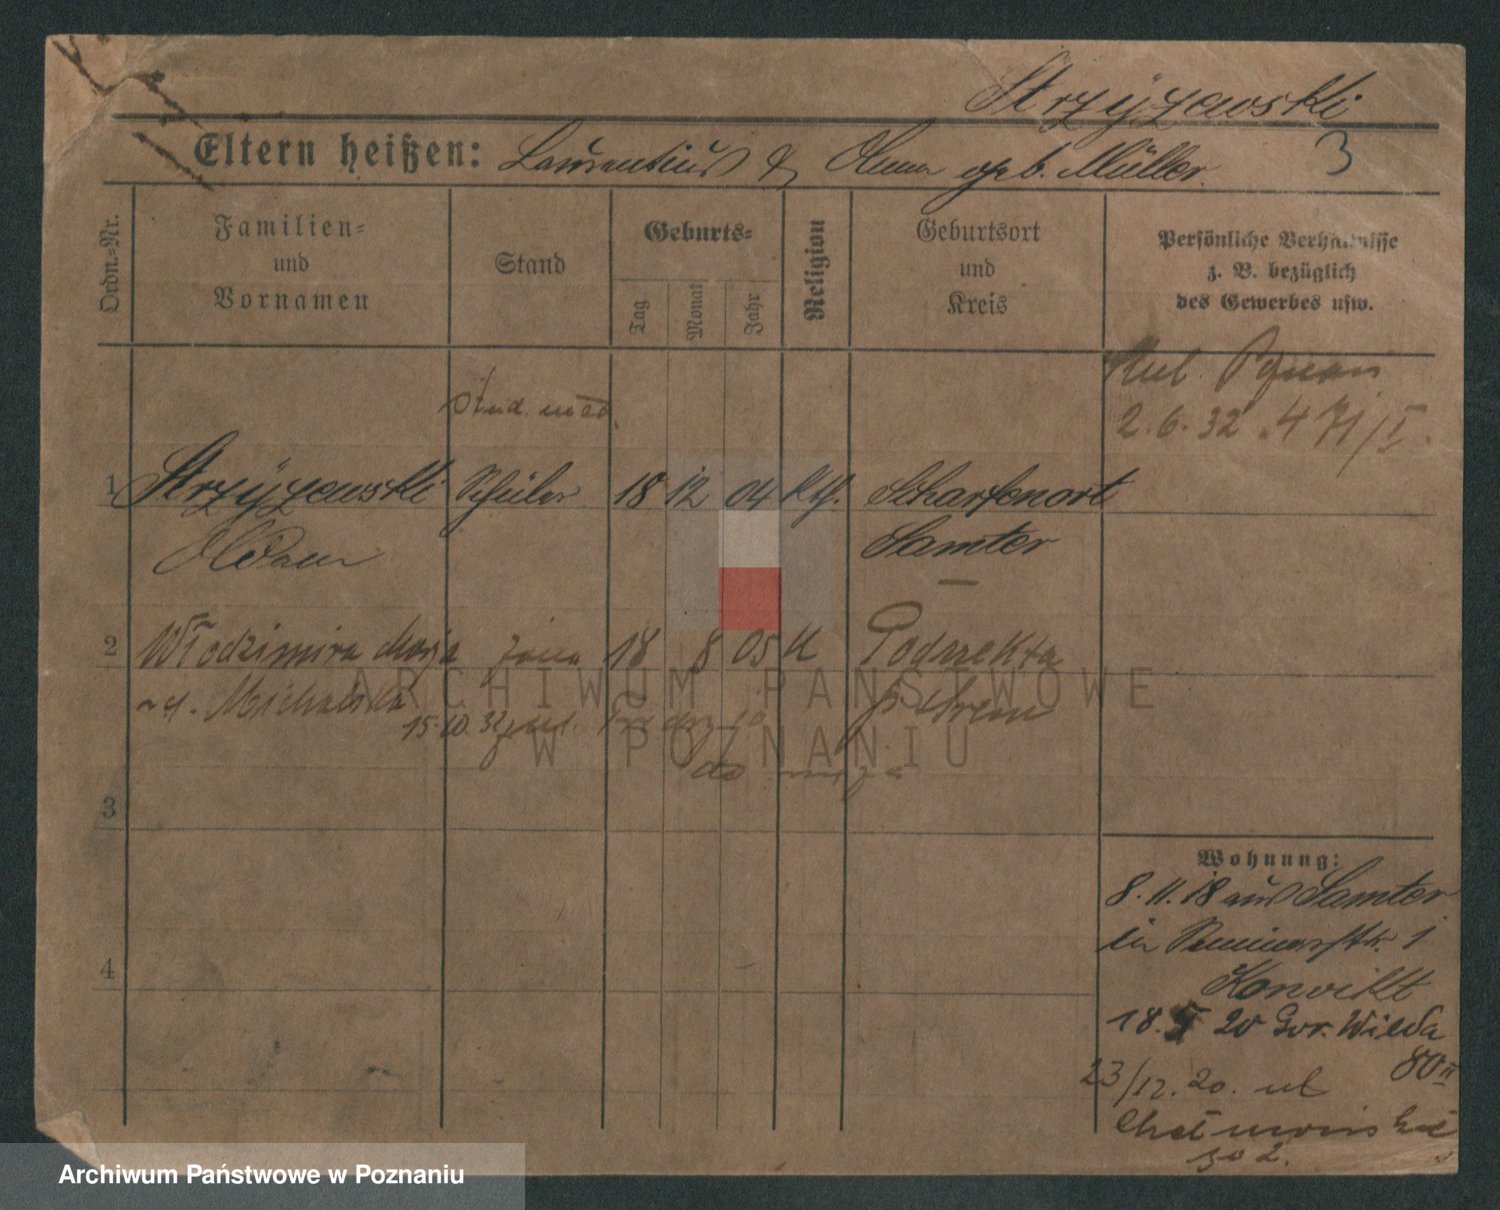 Strzyżewski
Eltern heißen: Laurentius & Anna geb. Müller. 3
Ordn.-Nr.
Familien-
und
Vornamen
Stand
Geburts-
Tag
Monat
Jahr
Religion
Geburtsort
und
Kreis
Persönliche Verhältnisse
z. B. bezüglich
des Gewerbes usw.
2.6.32
stud. med.
1 Strzyżewski Schüler 18 12 04 kth. Scharfenort
Adam Samter
2 Włodzimira Marja żona 18 8 05 K Podrzekta
Michalska
15.10.32
do męża
3
4
Wohnung:
8.11.18 aus Samter
in Seminarstr. 1
Konvikt
18.5 20 Gór. Wilda
80 II
23/12.20. ul
ARCHIWUM PAŃSTWOWE
W POZNANIU
Archiwum Państwowe w Poznaniu